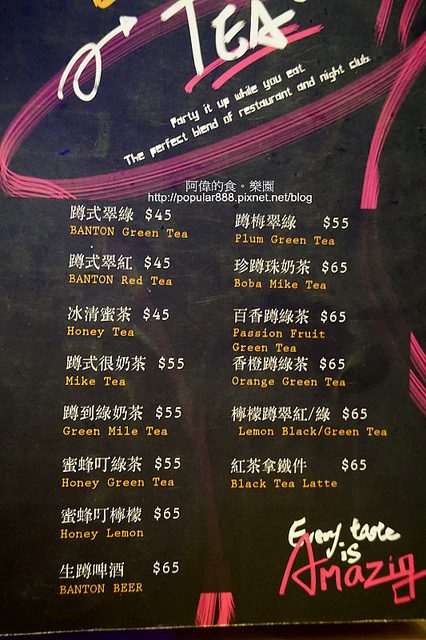 TEA
Party it up while you eat
The perfect blend of restaurant and night club
阿偉的食。樂園
http://popular888.pixnet.net/blog
蹲式翠綠 $45
BANTON Green Tea
蹲式翠紅 $45
BANTON Red Tea
冰清蜜茶 $45
Honey Tea
蹲式很奶茶 $55
Mike Tea
蹲到綠奶茶 $55
Green Mile Tea
蜜蜂叮綠茶 $55
Honey Green Tea
蜜蜂叮檸檬 $65
Honey Lemon
生蹲啤酒 $65
BANTON BEER
蹲梅翠綠 $55
Plum Green Tea
珍蹲珠奶茶 $65
Boba Mike Tea
百香蹲綠茶 $65
Passion Fruit
Green Tea
香橙蹲綠茶 $65
Orange Green Tea
檸檬蹲翠紅/綠 $65
Lemon Black/Green Tea
紅茶拿鐵件 $65
Black Tea Latte
Every taste
is
Amazig